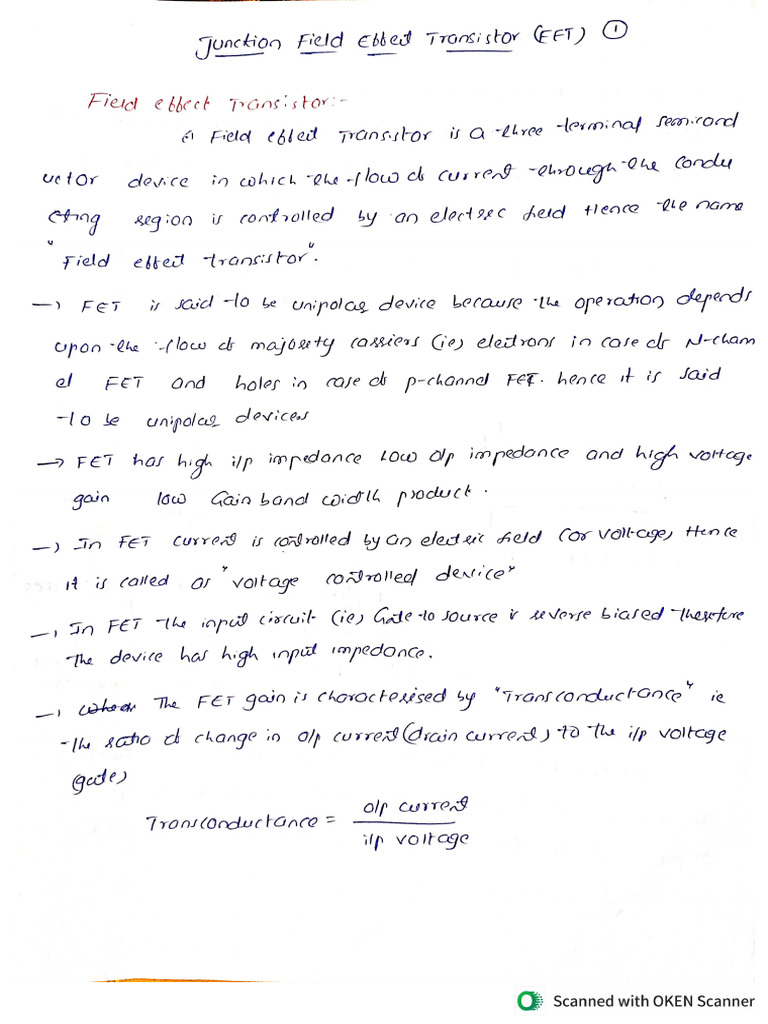 Junction Field Effect Transistor (EFT) 1
Field effect Transistor:-
A Field effect Transistor is a three terminal semicond
uctor device in which the flow of current through the condu
cting region is controlled by an electric field Hence the name
"Field effect transistor".
→ FET is said to be unipolar device because the operation depends
upon the flow of majority carriers (ie) electrons in case of N-chann
el FET and holes in case of p-channel FET. hence it is said
to be unipolar devices
→ FET has high i/p impedance Low o/p impedance and high voltage
gain low Gain band width product.
→ In FET current is controlled by an electric field (or voltage) Hence
it is called as "voltage controlled device"
→ In FET the input circuit (ie) Gate to source is reverse biased therefore
The device has high input impedance.
→ The FET gain is characterised by "Transconductance" ie
the ratio of change in o/p current (drain current) to the i/p voltage
(gate)
Transconductance = o/p current
i/p voltage
Scanned with OKEN Scanner